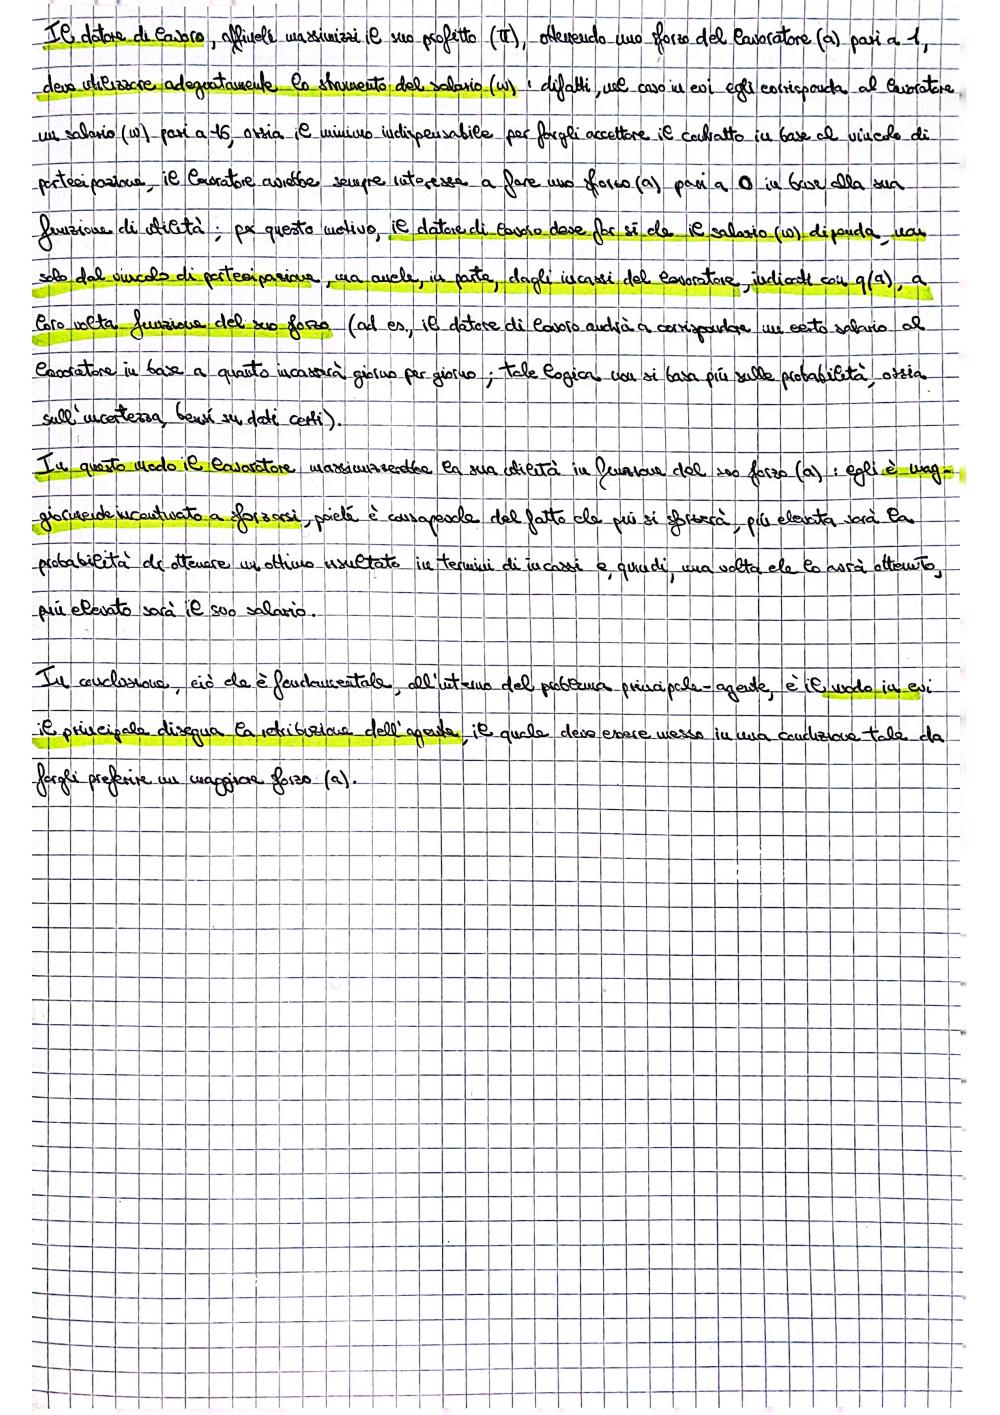 Il datore di lavoro, affinché massimizzi il suo profitto (π), ottenendo uno sforzo del lavoratore (a) pari a 1,
deve utilizzare adeguatamente lo strumento del salario (w) : difatti, nel caso in cui egli corrisponda al lavoratore
un salario (w) pari a 16, ossia il minimo indispensabile per fargli accettare il contratto in base al vincolo di
partecipazione, il lavoratore avrebbe sempre interesse a fare uno sforzo (a) pari a 0 in base alla sua
funzione di utilità ; per questo motivo, il datore di lavoro deve far sì che il salario (w) dipenda, non
solo dal vincolo di partecipazione, ma anche, in parte, dagli incassi del lavoratore, indicati con q(a), a
loro volta funzione del suo sforzo (ad es., il datore di lavoro andrà a corrispondere un certo salario al
lavoratore in base a quanto incasserà giorno per giorno ; tale logica non si basa più sulle probabilità, ossia
sull'incertezza, bensì su dati certi).
In questo modo il lavoratore massimizzerebbe la sua utilità in funzione del suo sforzo (a) : egli è mag-
giormente incentivato a sforzarsi, poiché è consapevole del fatto che più si sforzerà, più elevata sarà la
probabilità di ottenere un ottimo risultato in termini di incassi e, quindi, una volta che lo avrà ottenuto,
più elevato sarà il suo salario.
In conclusione, ciò che è fondamentale, all'interno del problema principale-agente, è il modo in cui
il principale disegna la retribuzione dell'agente, il quale deve essere messo in una condizione tale da
fargli preferire un maggiore sforzo (a).